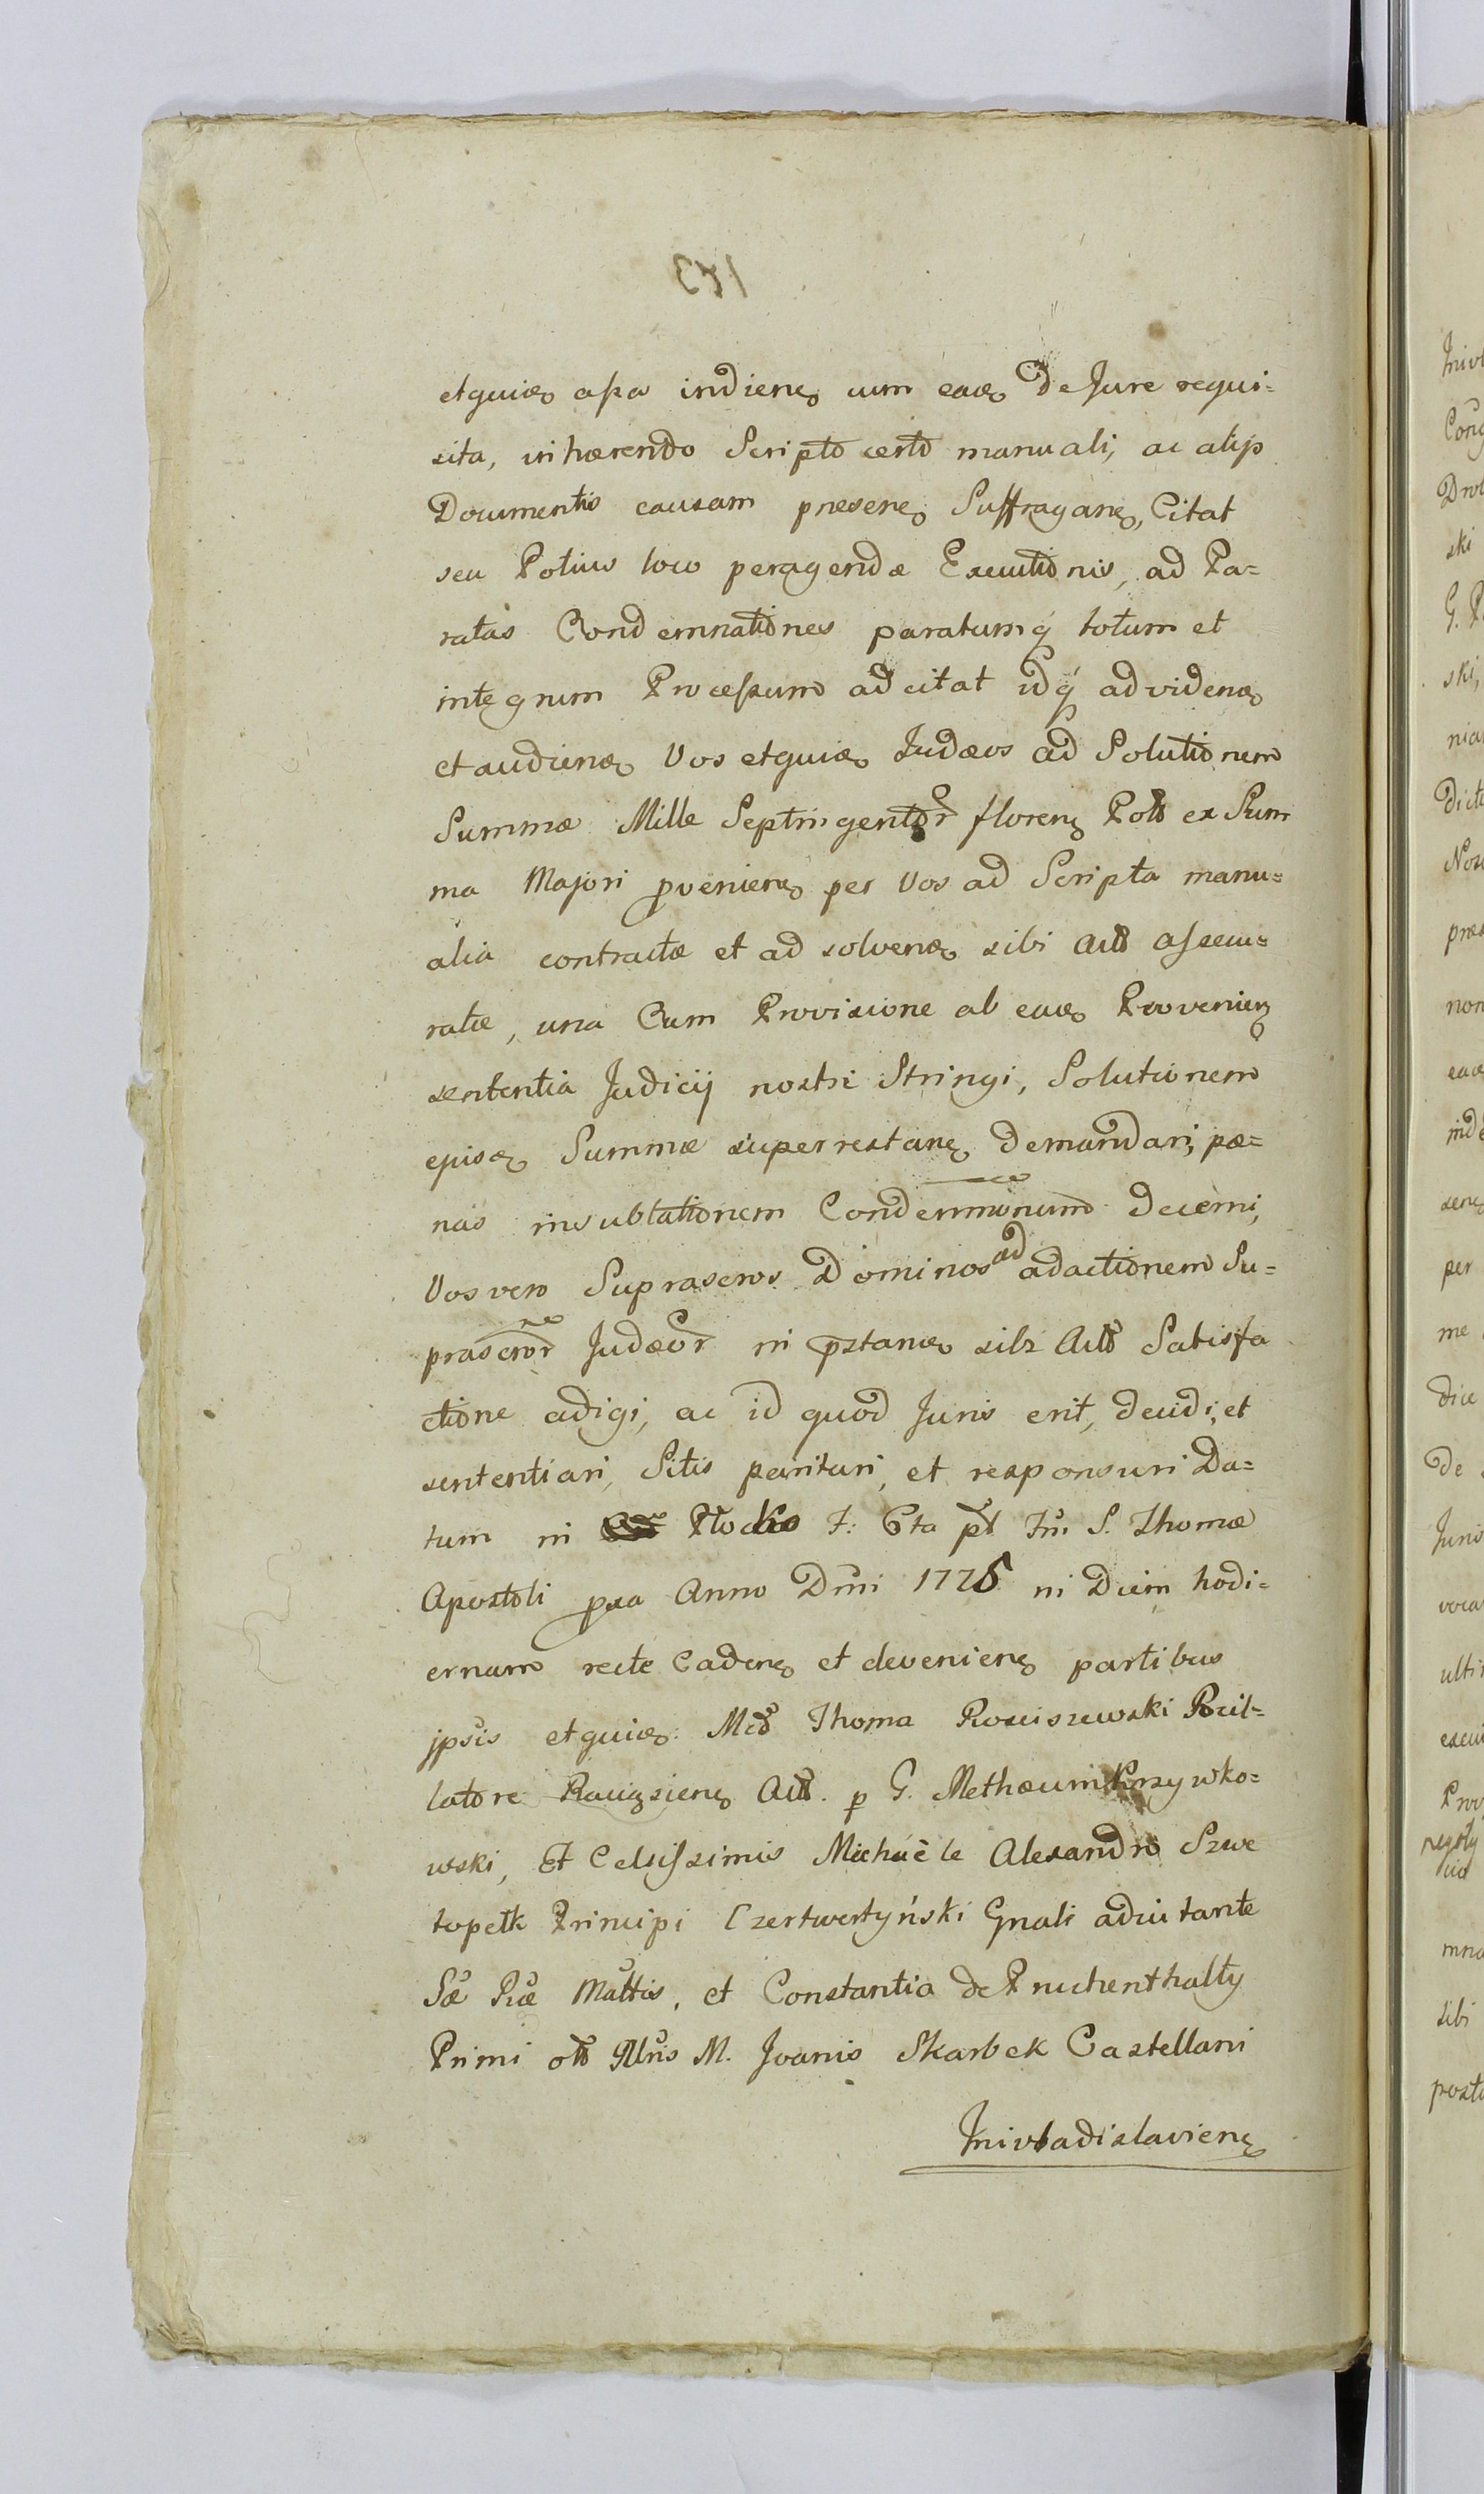 etguiæ asa indiene cum eaæ De Jure requi=
sita, inhærendo Scripto certo manuali, ac alijs
Documentis causam præsene Suffragane, Citat
seu Potius loco peragendæ Executionis, ad Pa=
ratas Condemnationes paratumq́ totum et
integrum Processum adcitat idq́ advidenæ
et audienæ Vos etguiæ Judæos ad Solutionem
Summæ Mille Septingentor florene Poll ex Sum
ma Majori pveniene per Vos ad Scripta manu=
alia contractæ et ad solvenæ sibi Acto assecu=
ratæ, una Cum Provisione ab eaæ Provenien
sententia Judicij nostri Stringi, Solutionem
ejusæ Summæ superrestane Demandari, pæ=
nas insublationem Condemnonum Decerni,
Vos vero Suprascros Dominos ad adactionem Su=
prascror Judæor in pstanæ sibi Acto Satisfa
ctione adigi, ac id quod Juris erit, decidi, et
sententiari, Sitis parituri, et responsuri Da=
tum in Plocko F: 6ta pt Fm S. Thomæ
Apostoli pxa Anno Dni 1775 in Diem hodi=
ernam recte Cadene et deveniene partibus
jpsis etguiæ. Mco Thoma Rosciszewski Pocil=
latore Raciązsiene Acto. p G. Methæum Krzywko=
wski, Et Celsissimis Michaële Alexandro Szwe
topełk Principi Czertwertyński Gnali adiutante
Sæ Ræ Mattis, et Constantia de Pruchenthalty
Primi olo Illris M. Joanis Skarbek Castellani
Inivladislaviene